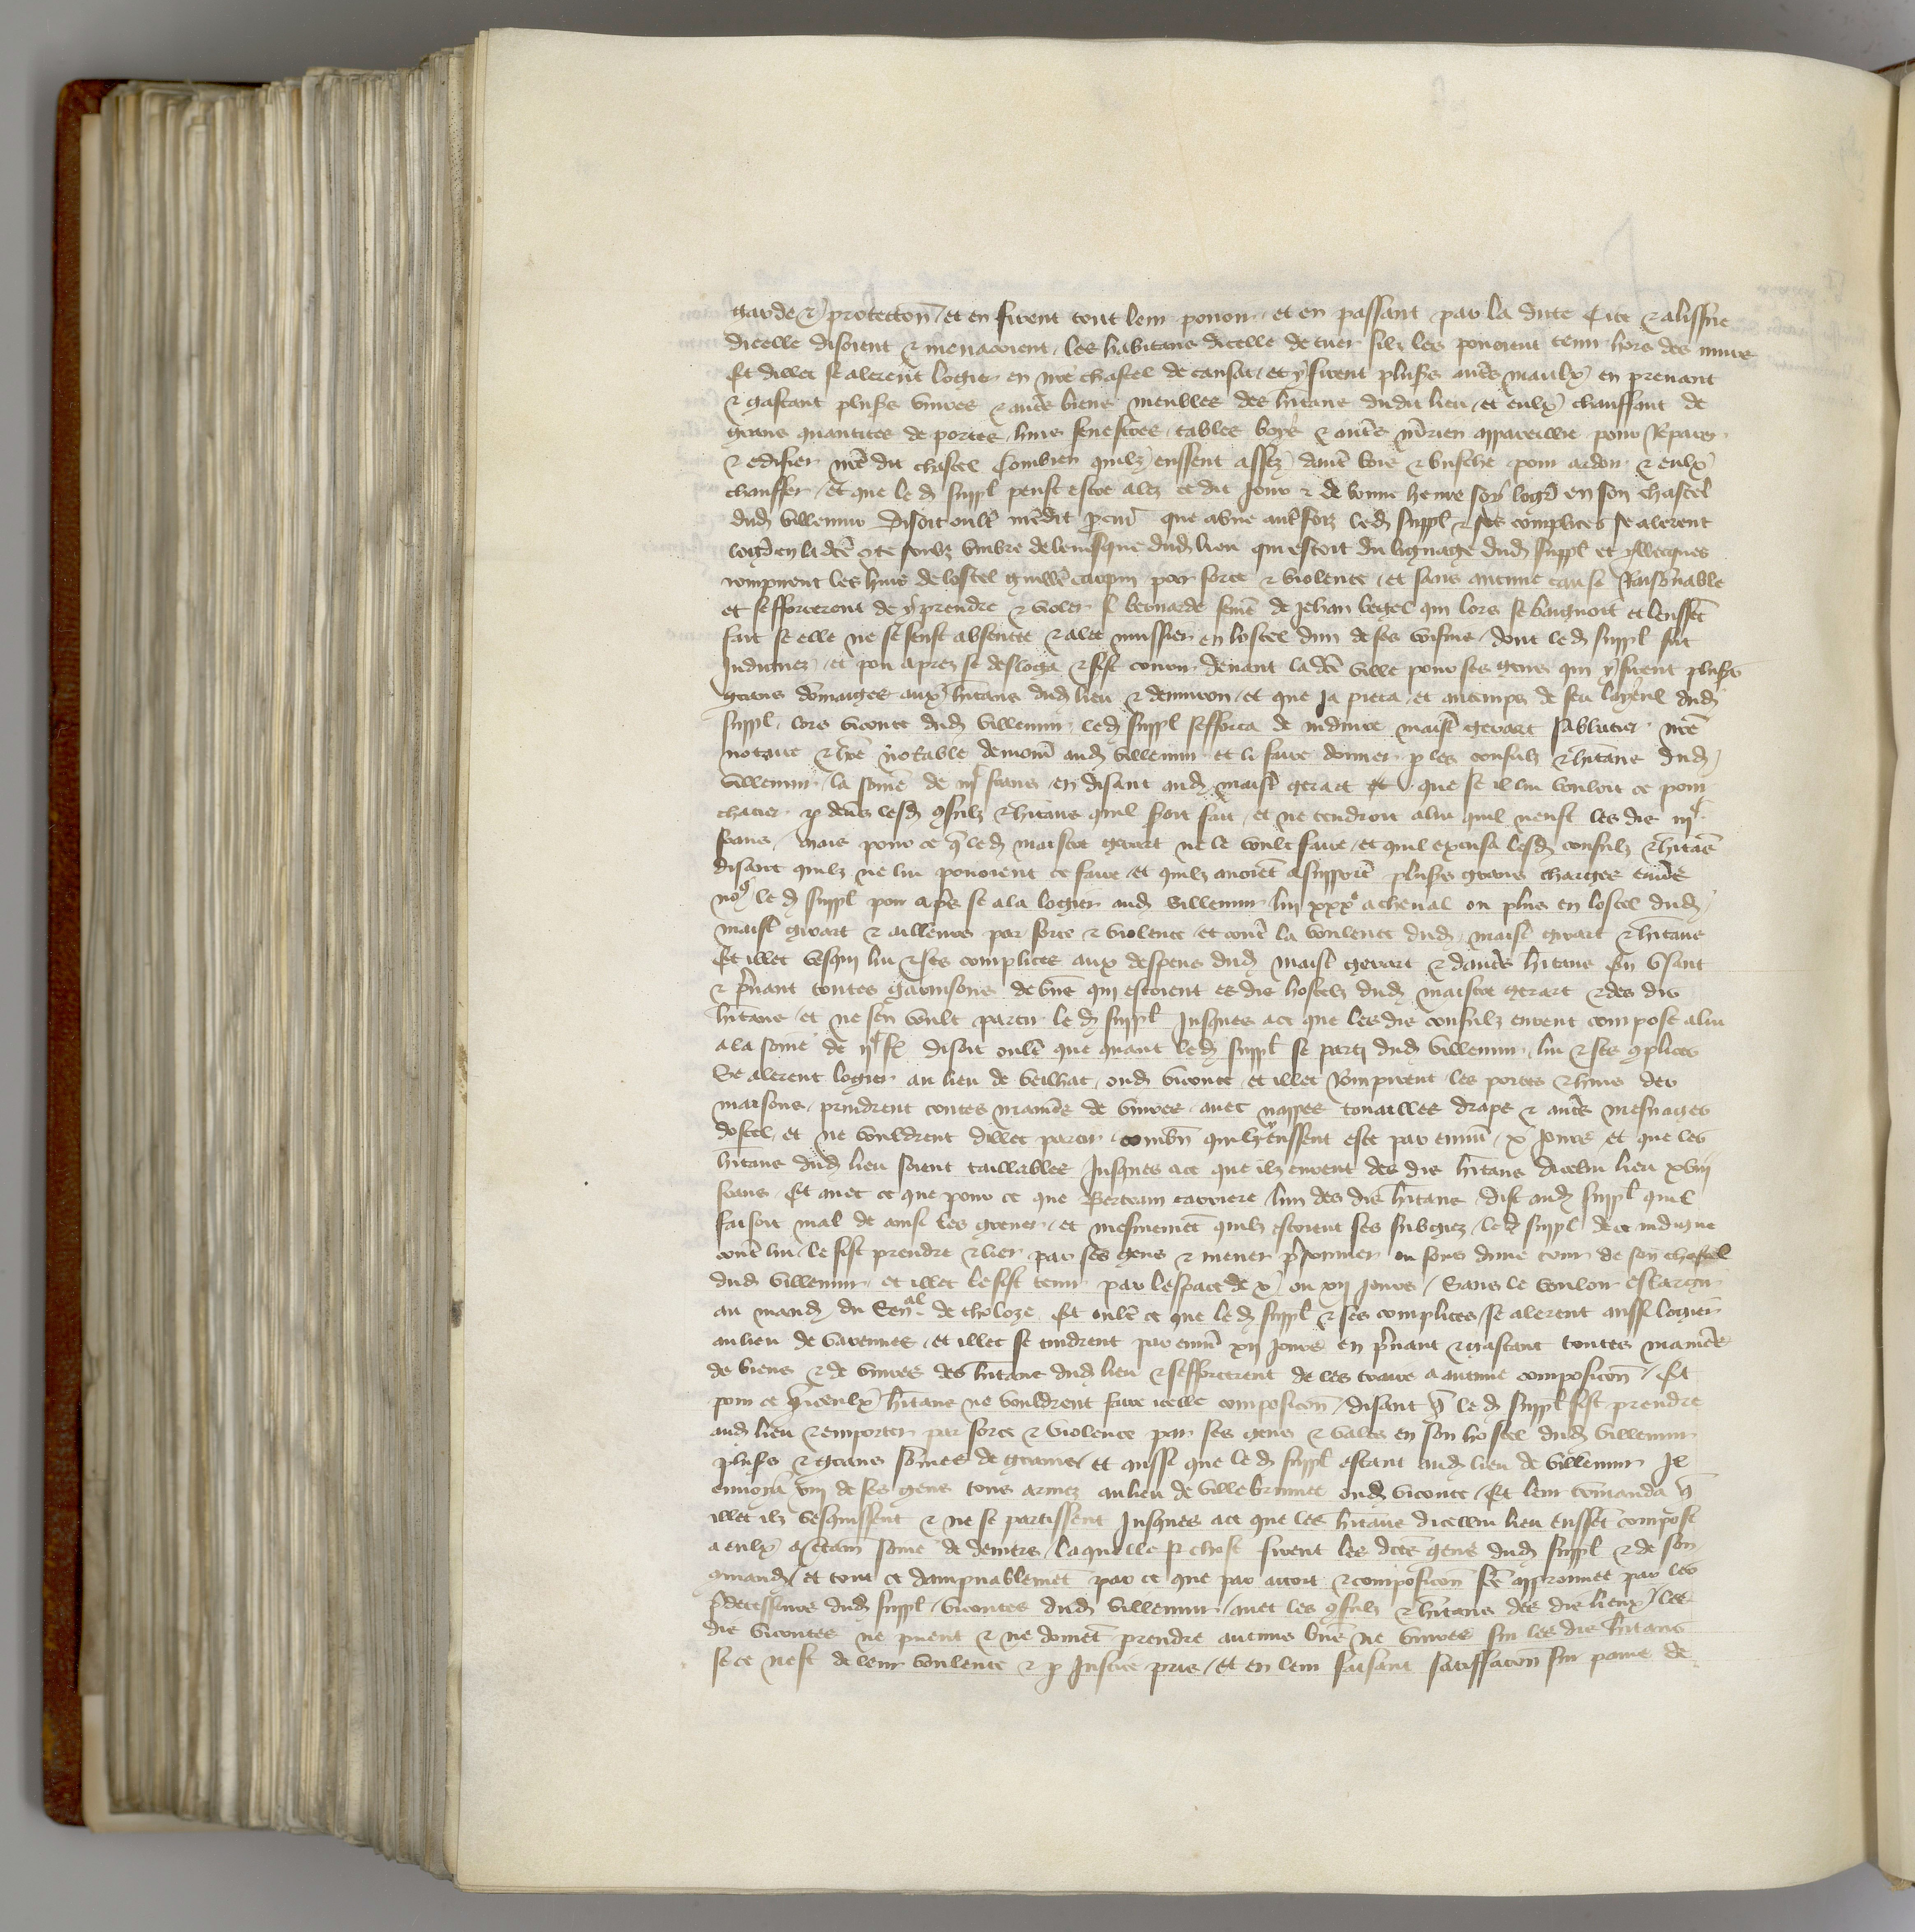 garde & protection / et en firent tout leur pouoir / et en passant par la dite Cite & a lissue
dicelle disoient & menacoient / les habitans dicelle de tuer silz les pouoient tenir hors des murs
Et dillec se alerent logier en nre chastel de / et y firent pluss autres maulx en prenant
& gastant pluss viures & autres biens meubles des hitans dudit lieu / et eulx chauffant de
grans quantites de portes / huis fenestres / tables boys & autre appareillie pour Reparer
& edifier nre dit chastel Combien quilz eussent assez dautre bois & busche pour ardoir & eulx
chauffer / Et que le d suppl peust estre alez ce dit jour & de bonne heure soy logier en son chastel
dud villemur Disoit oult nredit procur que a une aultfoiz led suppl & ses complices se alerent
logier en la dce cite soubz umbre de leuesque dud lieu qui estoit du lignage dud suppl et illecques
rompirent les huis de lostel par force & violence / et sans aucune cause Raisonnable
et sefforcerent de y prendre & violer bernarde feme de Jehan qui lors se baignoit et leussent
fait se elle ne se feust absentee & alee mussier en lostel dun de ses voisins / dont le d suppl fut
Indignez / et pou aprez se desloga & fist courir deuant la dce ville pour ses gens qui y firent pluss
grans domaiges aux hitans dud lieu & denuiron / et que ja pieca / et au temps de feu layeul dud
suppl / lors viconte dud villemur / led suppl sefforca de induire maistre gerart nre
notaire & notable demour aud villemur et li faire donner p les consulz & hitans dud
villemur / la some de iiic frans / en disant aud maist gerart que se il lui vouloit ce pour
chacier p deuers lesd consulz & hitans quil soit fait / et ne tendroit a lui quil neust les dis iiic
frans / mais pour ce q led maistre gerart ne le voult faire / et quil excusa lesd consulz & hitans
disant quilz ne lui pouoient ce faire / et quilz auoient a supporter pluss grans charges enuers
nous le d suppl pou apres se ala logier aud villemur lui xxxe a cheual ou plus en lostel dud
maist gerart & ailleurs par force & violence / et contre la voulente dud maist gerart & hitans
Et illec vesqui lui & ses complices aux despens dud maist gerart & dautres hitans En vsant
& pnant toutes garnisons de viure qui estoient es dis hostelz dud maistre gerart & des dis
hitans / et ne sen voult partir le d suppl Jusques a ce que les dis consulz eurent compose a lui
a la some de iic fr disoit oult que quant led suppl se parti dud villemur / lui & ses complices
Se alerent logier au lieu de veilhac / oud viconte / et illec Rompirent les portes & huis des
maisons / prindrent toutes manieres de viures / auec nappes touailles draps & autres mesnages
dostel / et ne vouldrent dillec partir / combien quilz y eussent este par enuiron x jours / et que les
hitans dud lieu soient taillables Jusques a ce que ilz eurent des dis hitans dicelui lieu xviii
frans / Et auec ce que pour ce que Bertran carriere / lun des dis hitans / dist aud suppl quil
faisoit mal de ainsi les greuer / et mesmement quilz estoient ses subgiez / led suppl de ce indigne
contre lui / le fist prendre & lier par ses gens & mener prisonnier ou fons dune tour de son chastel
dud villemur / et illec le fist tenir par lespace de x ou xii jours / Sans le vouloir eslargir
au mand du Senal de tholoze Et oultre ce que le d suppl & ses complices / se alerent aussi logier
au lieu de varennes / et illec se tindrent par enuiron xii jours en pnant & gastant toutes manieres
de biens & de viures des hitans dud lieu & sefforcerent de les traire a aucune composicon / Et
pour ce q iceulx hitans ne vouldrent faire icelle composicon / disant q le d suppl fist prendre
aud lieu & emporter par force & violence par ses gens & vales en son hostel dud villemur
pluss & grans somes de grains / et aussi que le d suppl estant aud lieu de villemur Il
enuoya viii de ses gens tous armez au lieu de villebrumer oud viconte / Et leur commanda q
illec ilz vesquissent & ne se partissent Jusques a ce que les hitans dicellui lieu eussent compose
a eulx a certaine some de deniers / laquelle chose firent les dces gens dud suppl & de son
comand / et tout ce dampnablement par ce que par acort & composicon appronuee par les
predecesseurs dud suppl / vicontes dud villemur / auec les consulz & hitans des dis lieux / les
dis vicontes ne puent & ne doiuent prendre aucuns biens ne viures sur les dis hitans
se ce nest de leur voulente & p Juste pris / et en leur faisant satisfacon sur paine de